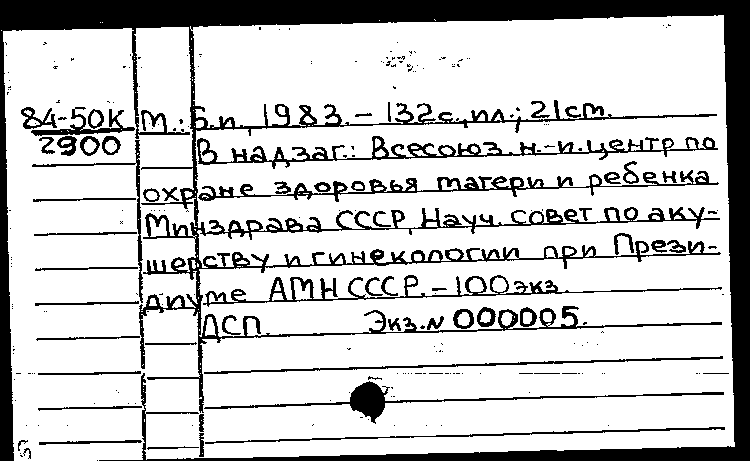 84-50К М.: Б.и., 1983. – 132 с., ил.; 21 см.
2900 В надзаг.: Всесоюз. н.-и. центр по
охране здоровья матери и ребенка
Минздрава СССР, Науч. совет по аку-
шерству и гинекологии при Прези-
диуме АМН СССР. – 100 экз.
ДСП. Экз. N 000005.